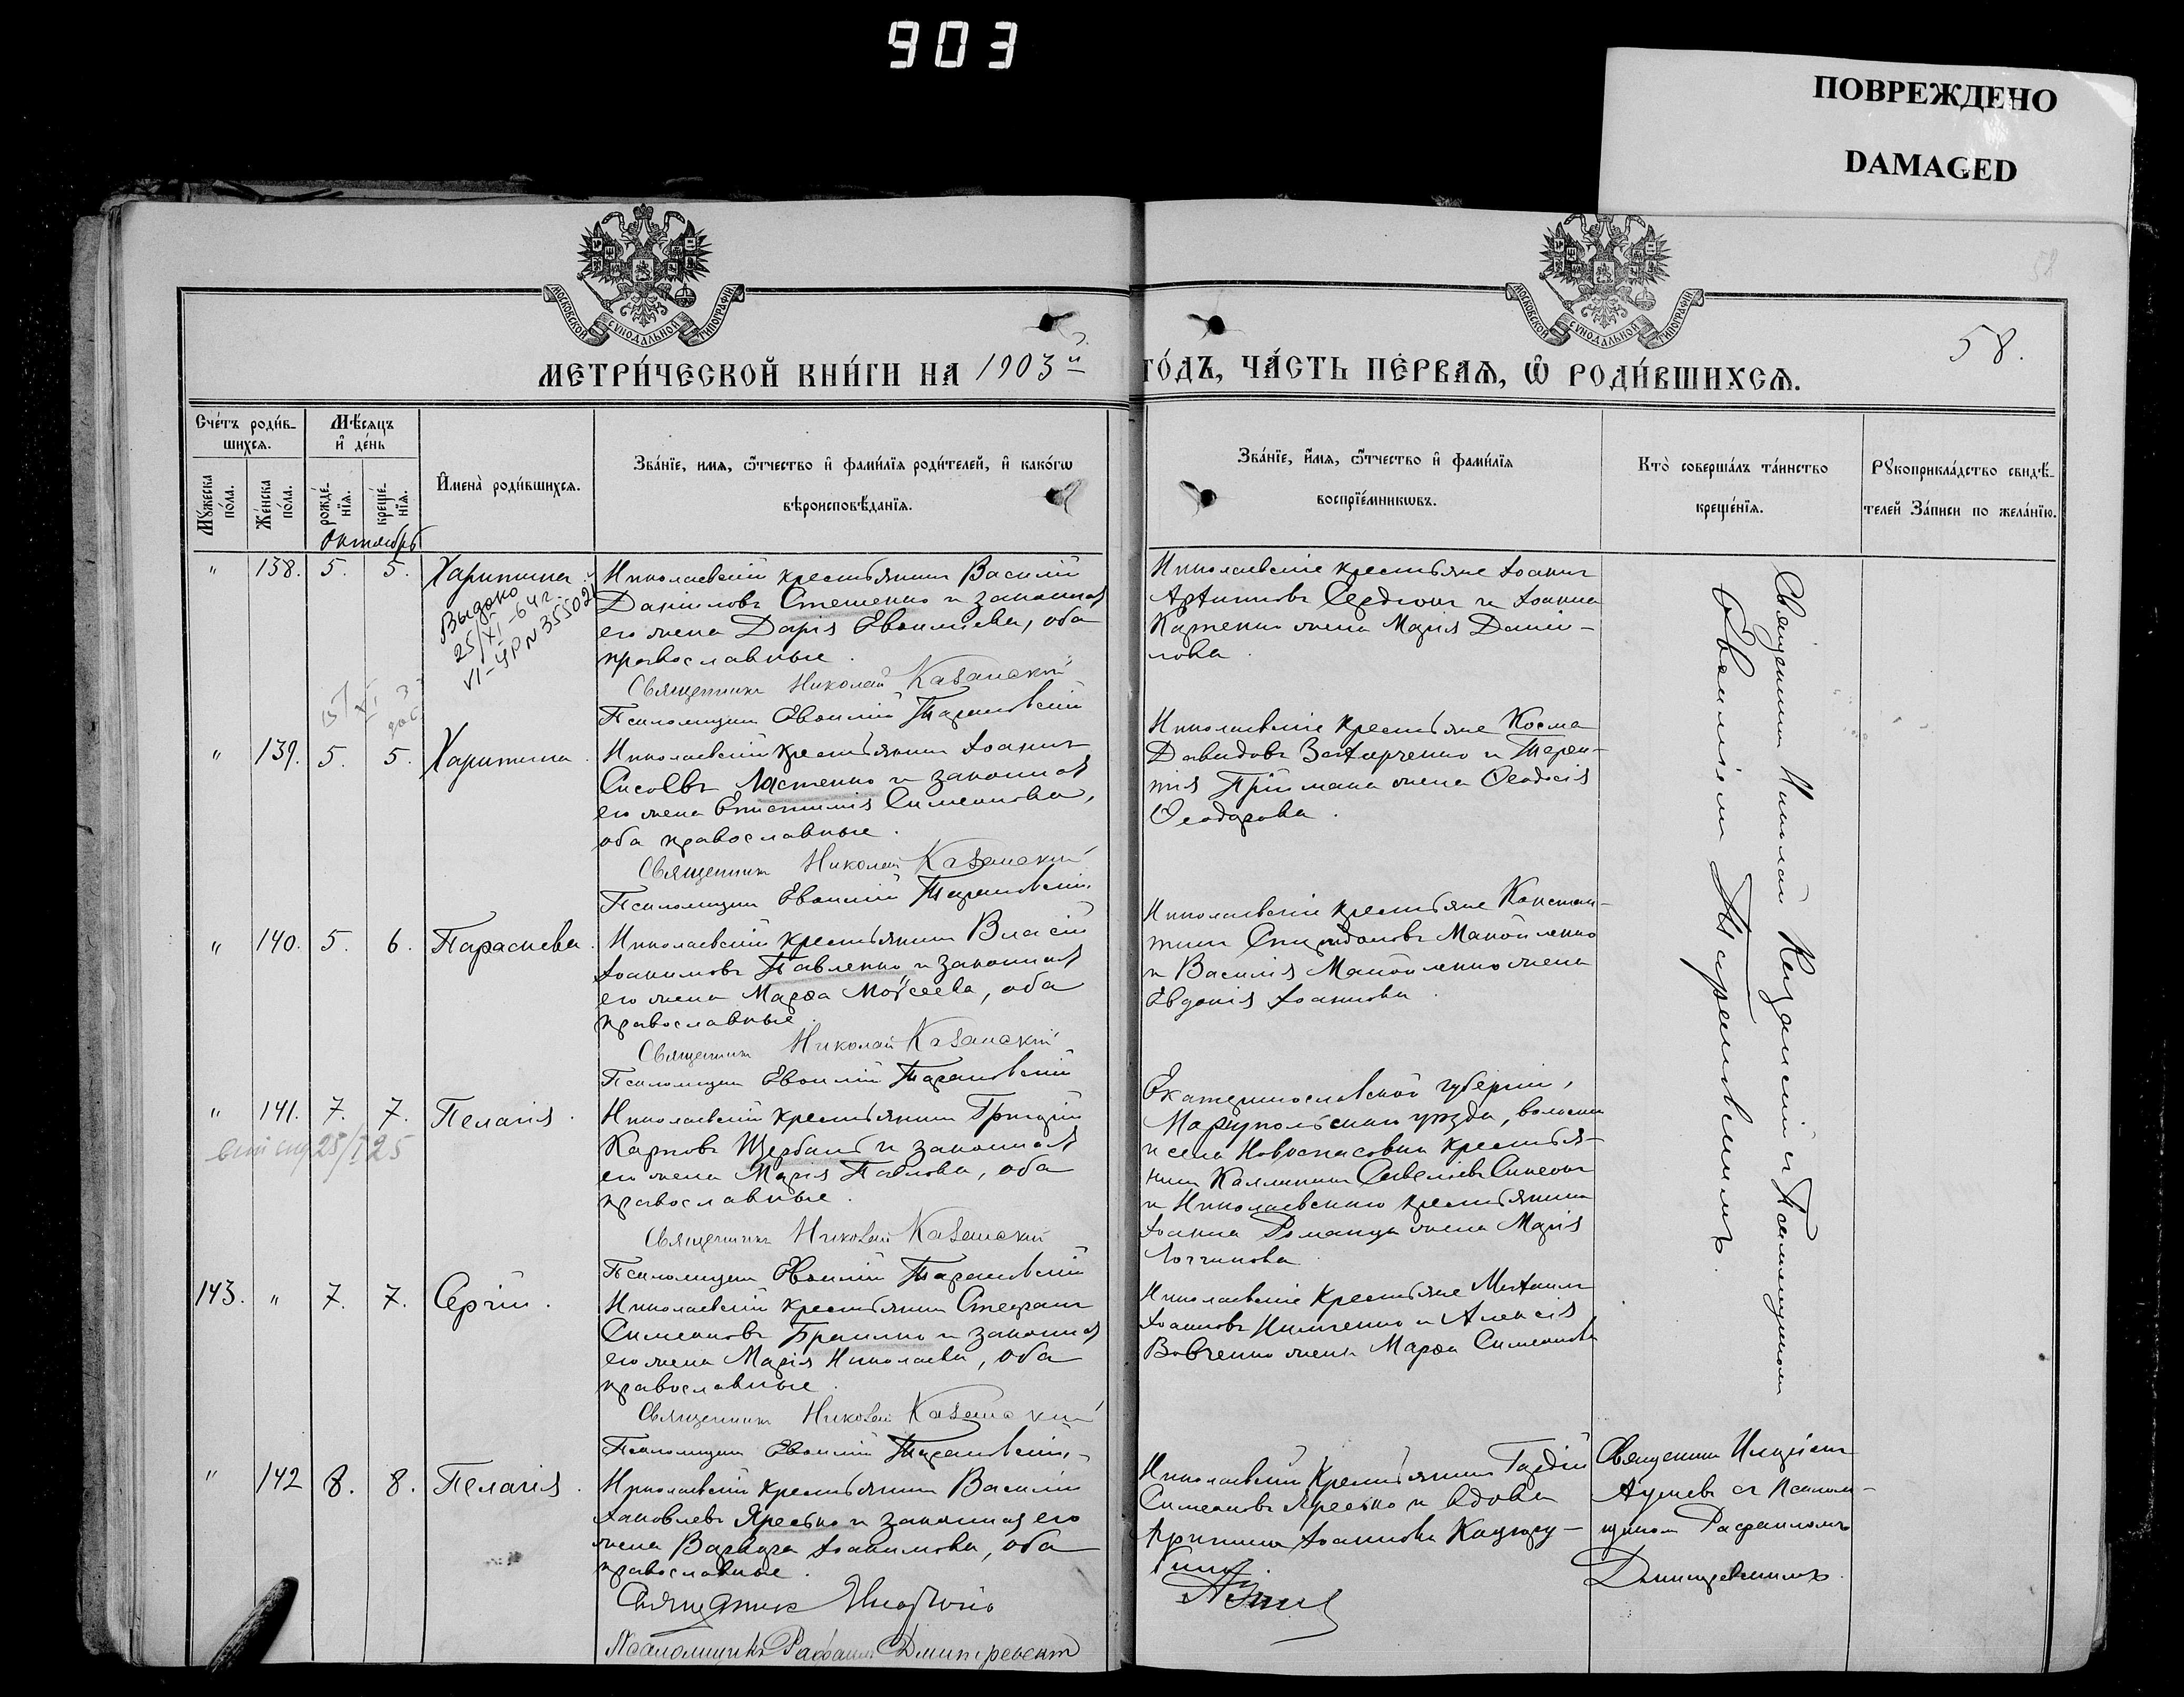 903
ПОВРЕЖДЕНО
DAMAGED
МОСКОВСКОЙ СУНОДАЛЬНОЙ ТИПОГРАФІИ
МОСКОВСКОЙ СУНОДАЛЬНОЙ ТИПОГРАФІИ
58
58.
МЕТРИ́ЧЕСКОЙ КНИ́ГИ НА 1903й
ГО́ДЪ, ЧА́СТЬ ПЕ́РВАѦ, Ѡ РОДИ́ВШИХСѦ.
Сче́тъ роди́в-
шихсѧ.
Мѣ́сѧцъ
и де́нь
Мꙋ́жеска по́ла.
Же́нска по́ла.
рожде́нїѧ.
креще́нїѧ.
И҆мена̀ роди́вшихсѧ.
Зва́нїе, имѧ, ѻ҆́тчество и҆ фами́лїѧ роди́телей, и҆ како́гѡ
вѣроисповѣ́данїѧ.
Зва́нїе, и҆́мѧ, ѻ҆́тчество и҆ фами́лїѧ
воспрїе́мникѡвъ.
Кто̀ соверша́лъ та́инство
креще́нїѧ.
Рꙋкоприкла́дство свидѣ́-
телей За́писи по жела́нїю.
Октябрь
" 138. 5. 5. Харитина
Выдано
25/XI-64 г.
VI-ЯР N 355021
Николаевскій крестьянинъ Василій
Даніиловъ Стешенко и законная
его жена Дарія Евѳиміева, оба
православные.
Священникъ Николай Казанскій
Псаломщикъ Евѳимій Тарановскій
Николаевскіе крестьяне Іоаннъ
и Іоанна
жена Марія Дании-
лова.
" 139. 5. 5. Харитина.
Николаевскій крестьянинъ Іоаннъ
Сисоевъ Ластенко и законная
его жена Епистимія Симеонова,
оба православные.
Священникъ Николай Казанскій
Псаломщикъ Евѳимій Тарановскій
Николаевскіе крестьяне Косма
Давидовъ Захарченко и Терен-
тія Приймака жена Ѳеодосія
Ѳеодорова.
" 140. 5. 6. Параскева.
Николаевскій крестьянинъ Власій
Іоакимовъ Павленко и законная
его жена Марѳа Моѵсеева, оба
православные.
Священникъ Николай Казанскій
Псаломщикъ Евѳимій Тарановскій
Николаевскіе крестьяне Констан-
тинъ Спиридоновъ Манойленко
и Василія Манойленко жена
Евдокія Іоаннова.
" 141. 7. 7. Пелагія.
25/I 25
Николаевскій крестьянинъ Григорій
Карповъ Щербакъ и законная
его жена Марія Павлова, оба
православные.
Священникъ Николай Казанскій
Псаломщикъ Евѳимій Тарановскій
Екатеринославской губерніи,
Маріупольскаго уѣзда, волости
и села Новоспасовки крестья-
нинъ Каллиникъ Савеліевъ
и Николаевскаго крестьянина
Іоанна Романца жена Марія
Логгинова.
143. " 7. 7. Сергій.
Николаевскій крестьянинъ Стефанъ
Симеоновъ Браилко и законная
его жена Марія Николаева, оба
православные.
Священникъ Николай Казанскій
Псаломщикъ Евѳимій Тарановскій
Николаевскіе крестьяне Михаилъ
Іоанновъ и Алексія
Вовченко жена Марѳа Симеонова
" 142 8. 8. Пелагія.
Николаевскій крестьянинъ Василій
Іаковлевъ Яресько и законная его
жена Варвара Іоакимова, оба
православные.
Священникъ
Псаломщикъ Рафаилъ Дмитревскій
Николаевскій крестьянинъ Гордій
Симеоновъ Яресько и вдова
Ирина Іоаннова
Священникъ Николай Казанскій съ Псаломщикомъ
Евѳиміемъ Тарановскимъ.
Священникъ
съ псалом-
щикомъ Рафаиломъ
Дмитревскимъ.